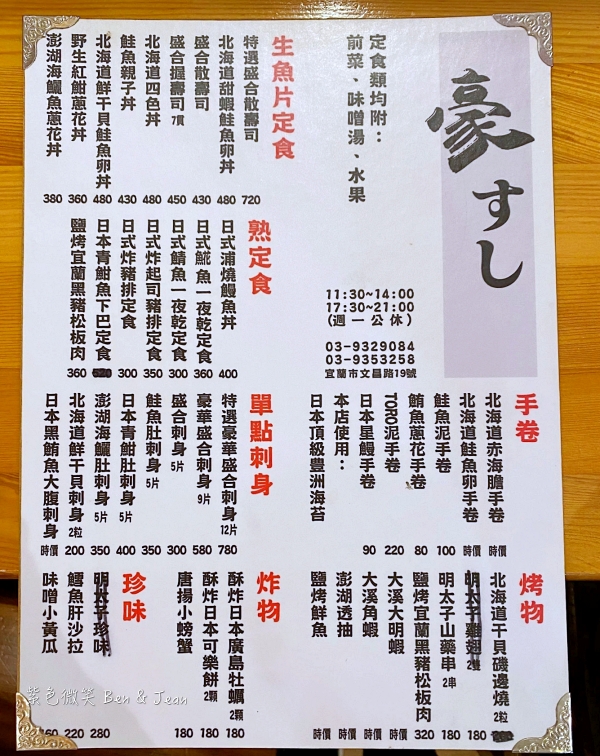 豪すし
定食類均附：
前菜、味噌湯、水果
11:30~14:00
17:30~21:00
(週一公休)
03-9329084
03-9353258
宜蘭市文昌路19號
生魚片定食
特選盛合散壽司 720
北海道甜蝦鮭魚卵丼 480
盛合散壽司 430
盛合握壽司 7貫 450
北海道四色丼 480
鮭魚親子丼 430
北海道鮮干貝鮭魚卵丼 480
野生紅魽蔥花丼 360
澎湖海鱺魚蔥花丼 380
熟定食
日式浦燒鰻魚丼 400
日式𩸽魚一夜乾定食 360
日式鯖魚一夜乾定食 300
日式炸起司豬排定食 350
日式炸豬排定食 300
日本青魽魚下巴定食
鹽烤宜蘭黑豬松板肉 360
手卷
北海道赤海膽手卷 時價
北海道鮭魚卵手卷 時價
鮭魚泥手卷 100
鮪魚蔥花手卷 80
TORO泥手卷 220
日本星鰻手卷 90
本店使用：
日本頂級豐洲海苔
單點刺身
特選豪華盛合刺身 12片 780
豪華盛合刺身 9片 580
盛合刺身 5片 300
鮭魚肚刺身 5片 350
日本青魽肚刺身 5片 400
澎湖海鱺肚刺身 5片 350
北海道鮮干貝刺身 2粒 200
日本黑鮪魚大腹刺身 時價
烤物
北海道干貝磯邊燒 2粒
明太子雞翅 2隻 180
明太子山藥串 2串 180
鹽烤宜蘭黑豬松板肉 320
大溪大明蝦 時價
大溪角蝦 時價
澎湖透抽 時價
鹽烤鮮魚 時價
炸物
酥炸日本廣島牡蠣 2顆 180
酥炸日本可樂餅 2顆 180
唐揚小螃蟹 180
珍味
明太子珍味 280
鱈魚肝沙拉 220
味噌小黃瓜 60
紫色微笑 Ben & Jean